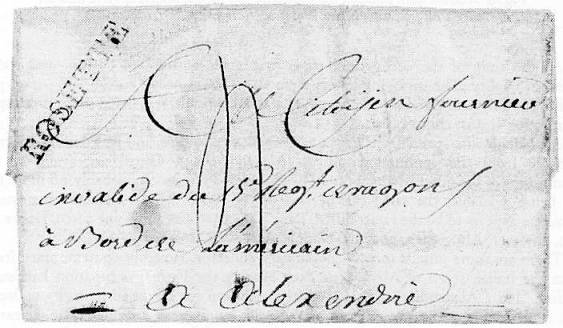 ROSETTE
Citoijen fournier
invalide du 15e Regt deragons
à Bord de L'américain
a alexendrie